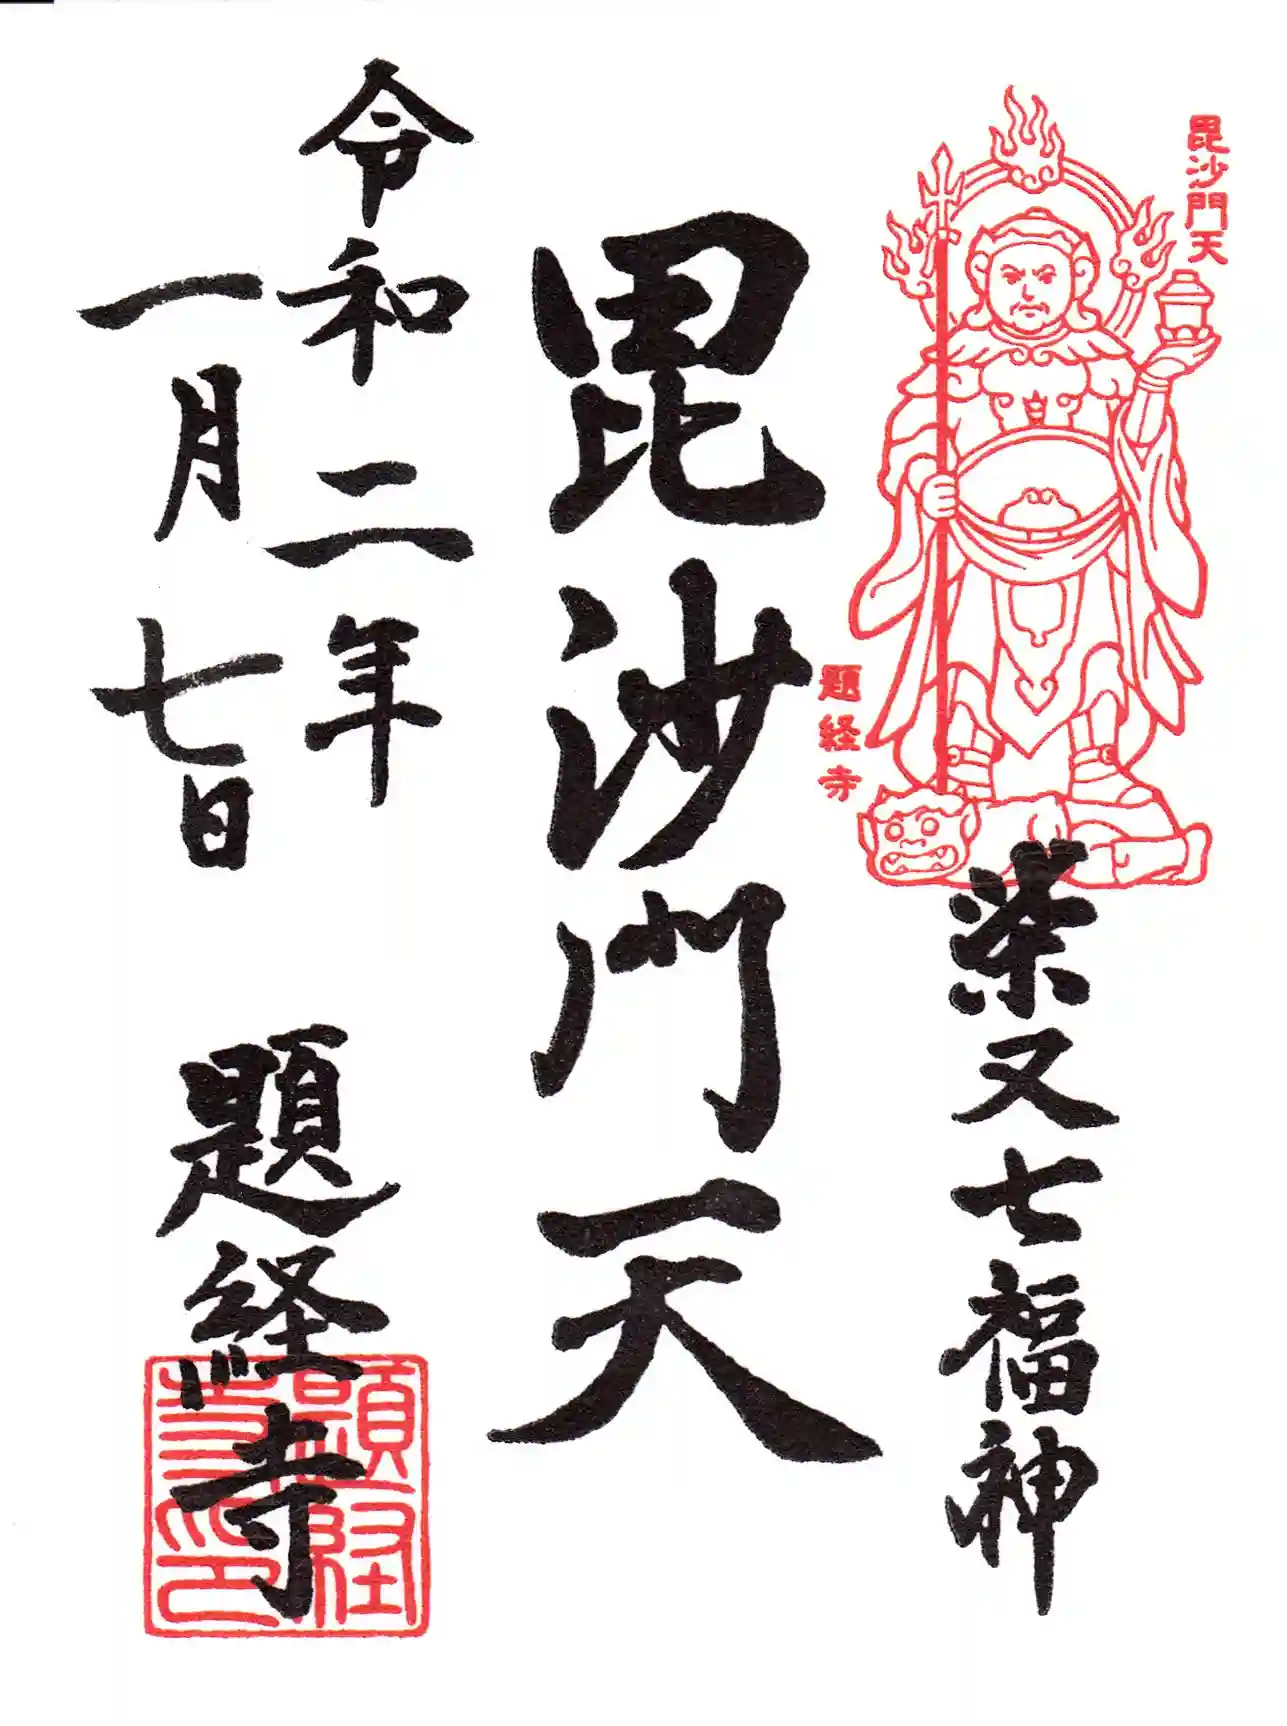 毘沙門天
題経寺
柴又七福神
毘沙門天
令和二年
一月七日
題経寺
題経寺印